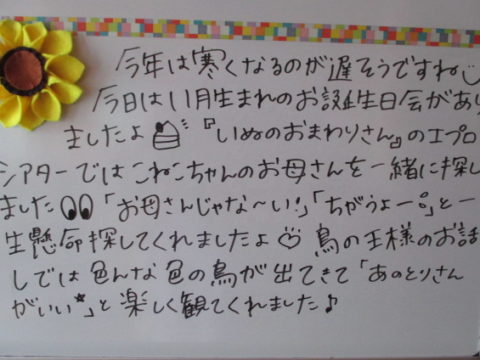 今年は寒くなるのが遅そうですね
今日は11月生まれのお誕生日会があり
ましたよ『いぬのおまわりさん』のエプロン
シアターではこねこちゃんのお母さんを一緒に探し
ました「お母さんじゃな～い!」「ちがうよー。」と一
生懸命探してくれましたよ♡鳥の王様のお話
しでは色んな色の鳥が出てきて「あのとりさん
がいい★」と楽しく観てくれました♪